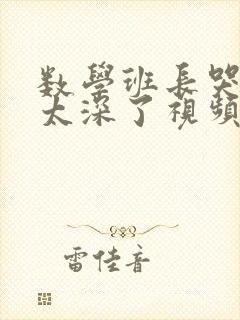 数學班長哭
太深了視頻
雷佳音